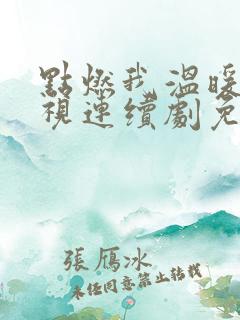 點燃我,溫暖
視連續劇免
張雁冰
未經同意禁止轉載